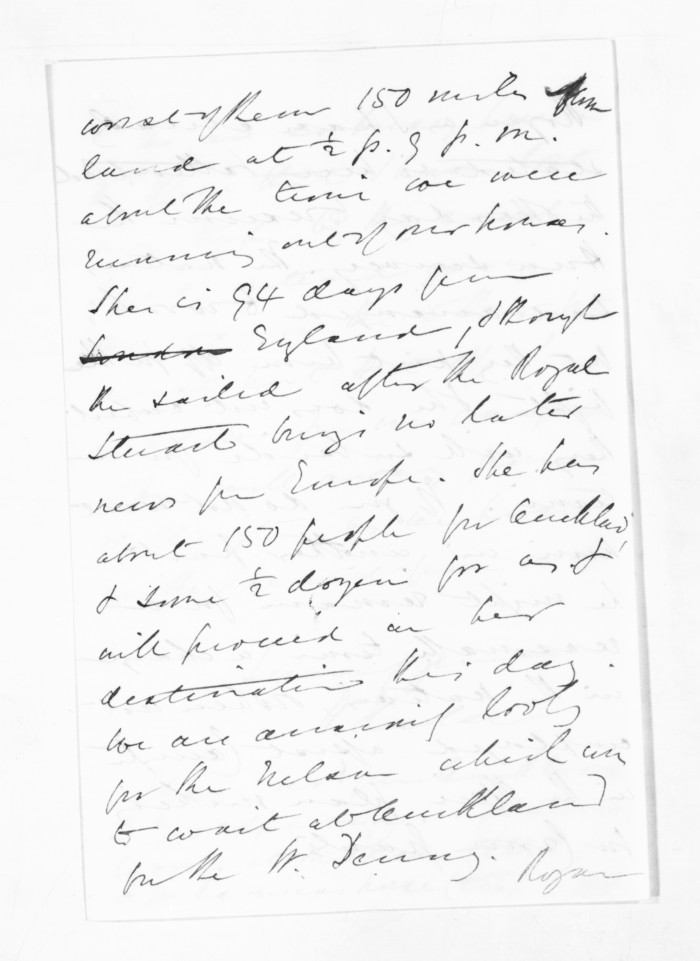 worst of them 150 miles from
land at ½ p. 9 p. m.
about the time we were
running out of our houses.
She is 94 days from
London England, & though
she sailed after the Royal
Stuart brings no later
news from Europe. She has
about 150 people for Auckland,
& some ½ dozen for us &
will proceed on her
destination this day.
We are anxiously looking
for the Nelson which was
to wait at Auckland
for the W. Denny.
Rogan